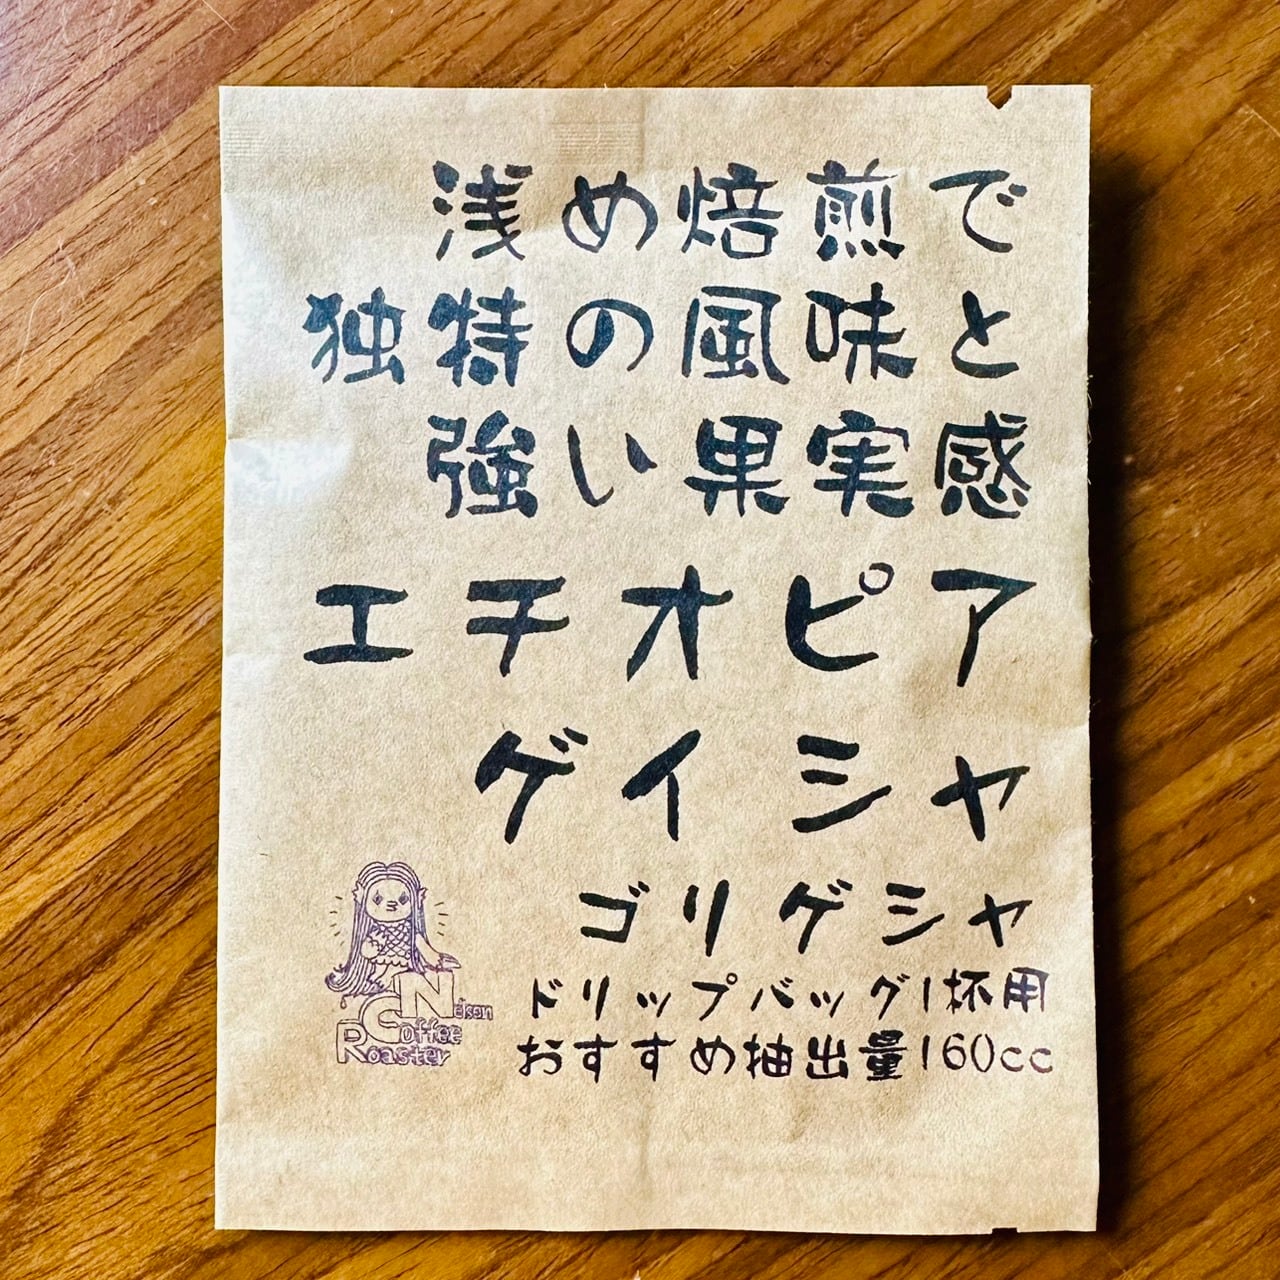 浅め焙煎で
独特の風味と
強い果実感
エチオピア
ゲイシャ
ゴリゲシャ
ドリップバッグ1杯用
おすすめ抽出量160cc
Nelson
Coffee
Roaster